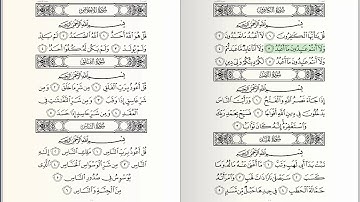 سُورَةُ الكَافِرُونَ
بِسْمِ اللَّهِ الرَّحْمَٰنِ الرَّحِيمِ
قُلْ يَٰٓأَيُّهَا ٱلْكَٰفِرُونَ ١ لَآ أَعْبُدُ مَا تَعْبُدُونَ ٢
وَلَآ أَنتُمْ عَٰبِدُونَ مَآ أَعْبُدُ ٣ وَلَآ أَنَا۠ عَابِدٌ مَّا عَبَدتُّمْ ٤
وَلَآ أَنتُمْ عَٰبِدُونَ مَآ أَعْبُدُ ٥ لَكُمْ دِينُكُمْ وَلِيَ دِينِ ٦
سُورَةُ النَّصْرِ
بِسْمِ اللَّهِ الرَّحْمَٰنِ الرَّحِيمِ
إِذَا جَآءَ نَصْرُ ٱللَّهِ وَٱلْفَتْحُ ١ وَرَأَيْتَ ٱلنَّاسَ
يَدْخُلُونَ فِي دِينِ ٱللَّهِ أَفْوَاجًا ٢ فَسَبِّحْ بِحَمْدِ رَبِّكَ
وَٱسْتَغْفِرْهُ إِنَّهُۥ كَانَ تَوَّابًۢا ٣
سُورَةُ المَسَدِ
بِسْمِ اللَّهِ الرَّحْمَٰنِ الرَّحِيمِ
تَبَّتْ يَدَآ أَبِي لَهَبٍ وَتَبَّ ١ مَآ أَغْنَىٰ عَنْهُ مَالُهُۥ وَمَا
كَسَبَ ٢ سَيَصْلَىٰ نَارًا ذَاتَ لَهَبٍ ٣ وَٱمْرَأَتُهُۥ
حَمَّالَةَ ٱلْحَطَبِ ٤ فِي جِيدِهَا حَبْلٌ مِّن مَّسَدٍۭ ٥
سُورَةُ الإِخْلَاصِ
بِسْمِ اللَّهِ الرَّحْمَٰنِ الرَّحِيمِ
قُلْ هُوَ ٱللَّهُ أَحَدٌ ١ ٱللَّهُ ٱلصَّمَدُ ٢ لَمْ يَلِدْ
وَلَمْ يُولَدْ ٣ وَلَمْ يَكُن لَّهُۥ كُفُوًا أَحَدٌۢ ٤
سُورَةُ الفَلَقِ
بِسْمِ اللَّهِ الرَّحْمَٰنِ الرَّحِيمِ
قُلْ أَعُوذُ بِرَبِّ ٱلْفَلَقِ ١ مِن شَرِّ مَا خَلَقَ ٢ وَمِن
شَرِّ غَاسِقٍ إِذَا وَقَبَ ٣ وَمِن شَرِّ ٱلنَّفَّٰثَٰتِ فِي
ٱلْعُقَدِ ٤ وَمِن شَرِّ حَاسِدٍ إِذَا حَسَدَ ٥
سُورَةُ النَّاسِ
بِسْمِ اللَّهِ الرَّحْمَٰنِ الرَّحِيمِ
قُلْ أَعُوذُ بِرَبِّ ٱلنَّاسِ ١ مَلِكِ ٱلنَّاسِ ٢
إِلَٰهِ ٱلنَّاسِ ٣ مِن شَرِّ ٱلْوَسْوَاسِ ٱلْخَنَّاسِ ٤ ٱلَّذِي
يُوَسْوِسُ فِي صُدُورِ ٱلنَّاسِ ٥
مِنَ ٱلْجِنَّةِ وَٱلنَّاسِ ٦